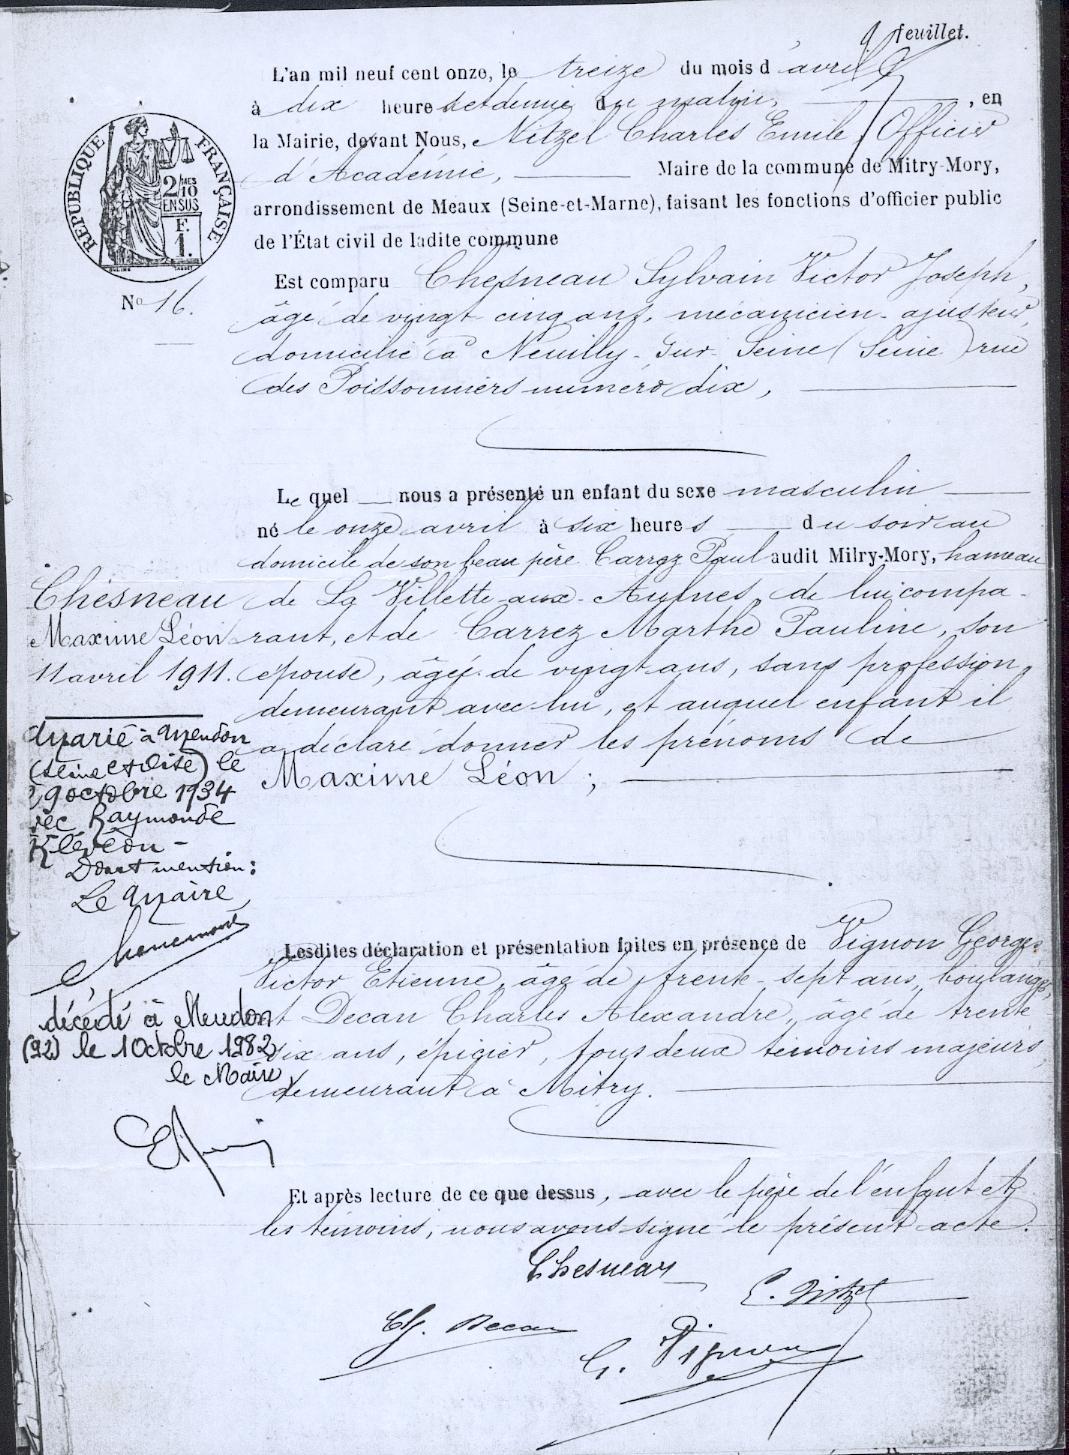 9 feuillet.
L'an mil neuf cent onze, le treize du mois d'avril
à dix heures et demie du matin, , en
la Mairie, devant Nous, Nitzel Charles Emile, Officier
d'Académie, Maire de la commune de Mitry-Mory,
arrondissement de Meaux (Seine-et-Marne), faisant les fonctions d'officier public
de l'État civil de ladite commune
RÉPUBLIQUE FRANÇAISE
2/10
EN SUS
F.
1.
No 16.
Est comparu Chesneau Sylvain Victor Joseph,
âgé de vingt cinq ans, mécanicien-ajusteur,
domicilié à Neuilly-sur-Seine (Seine) rue
des Poissonniers numéro dix,
Lequel nous a présenté un enfant du sexe masculin
né le onze avril à six heures du soir au
domicile de son beau père Carrez Paul audit Mitry-Mory, hameau
de La Villette-aux-Aulnes, de lui compa-
rant, et de Carrez Marthe Pauline, son
épouse, âgée de vingt ans, sans profession,
demeurant avec lui, et auquel enfant il
a déclaré donner les prénoms de
Maxime Léon ;
Chesneau
Maxime Léon
11 avril 1911.
Marié à Meudon
(Seine et Oise) le
9 octobre 1934
vec Raymonde
Dont mention :
Le Maire
décédé à Meudon
(92) le 1 Octobre 1982
le Maire
Lesdites déclaration et présentation faites en présence de Vignon Georges
Victor Etienne, âgé de trente-sept ans, boulanger,
et Decan Charles Alexandre, âgé de trente
six ans, épicier, tous deux témoins majeurs,
demeurant à Mitry.
Et après lecture de ce que dessus, avec le père de l'enfant et
les témoins, nous avons signé le présent acte.
Chesneau
C. Nitzel
Ch. Decan
G. Vignon